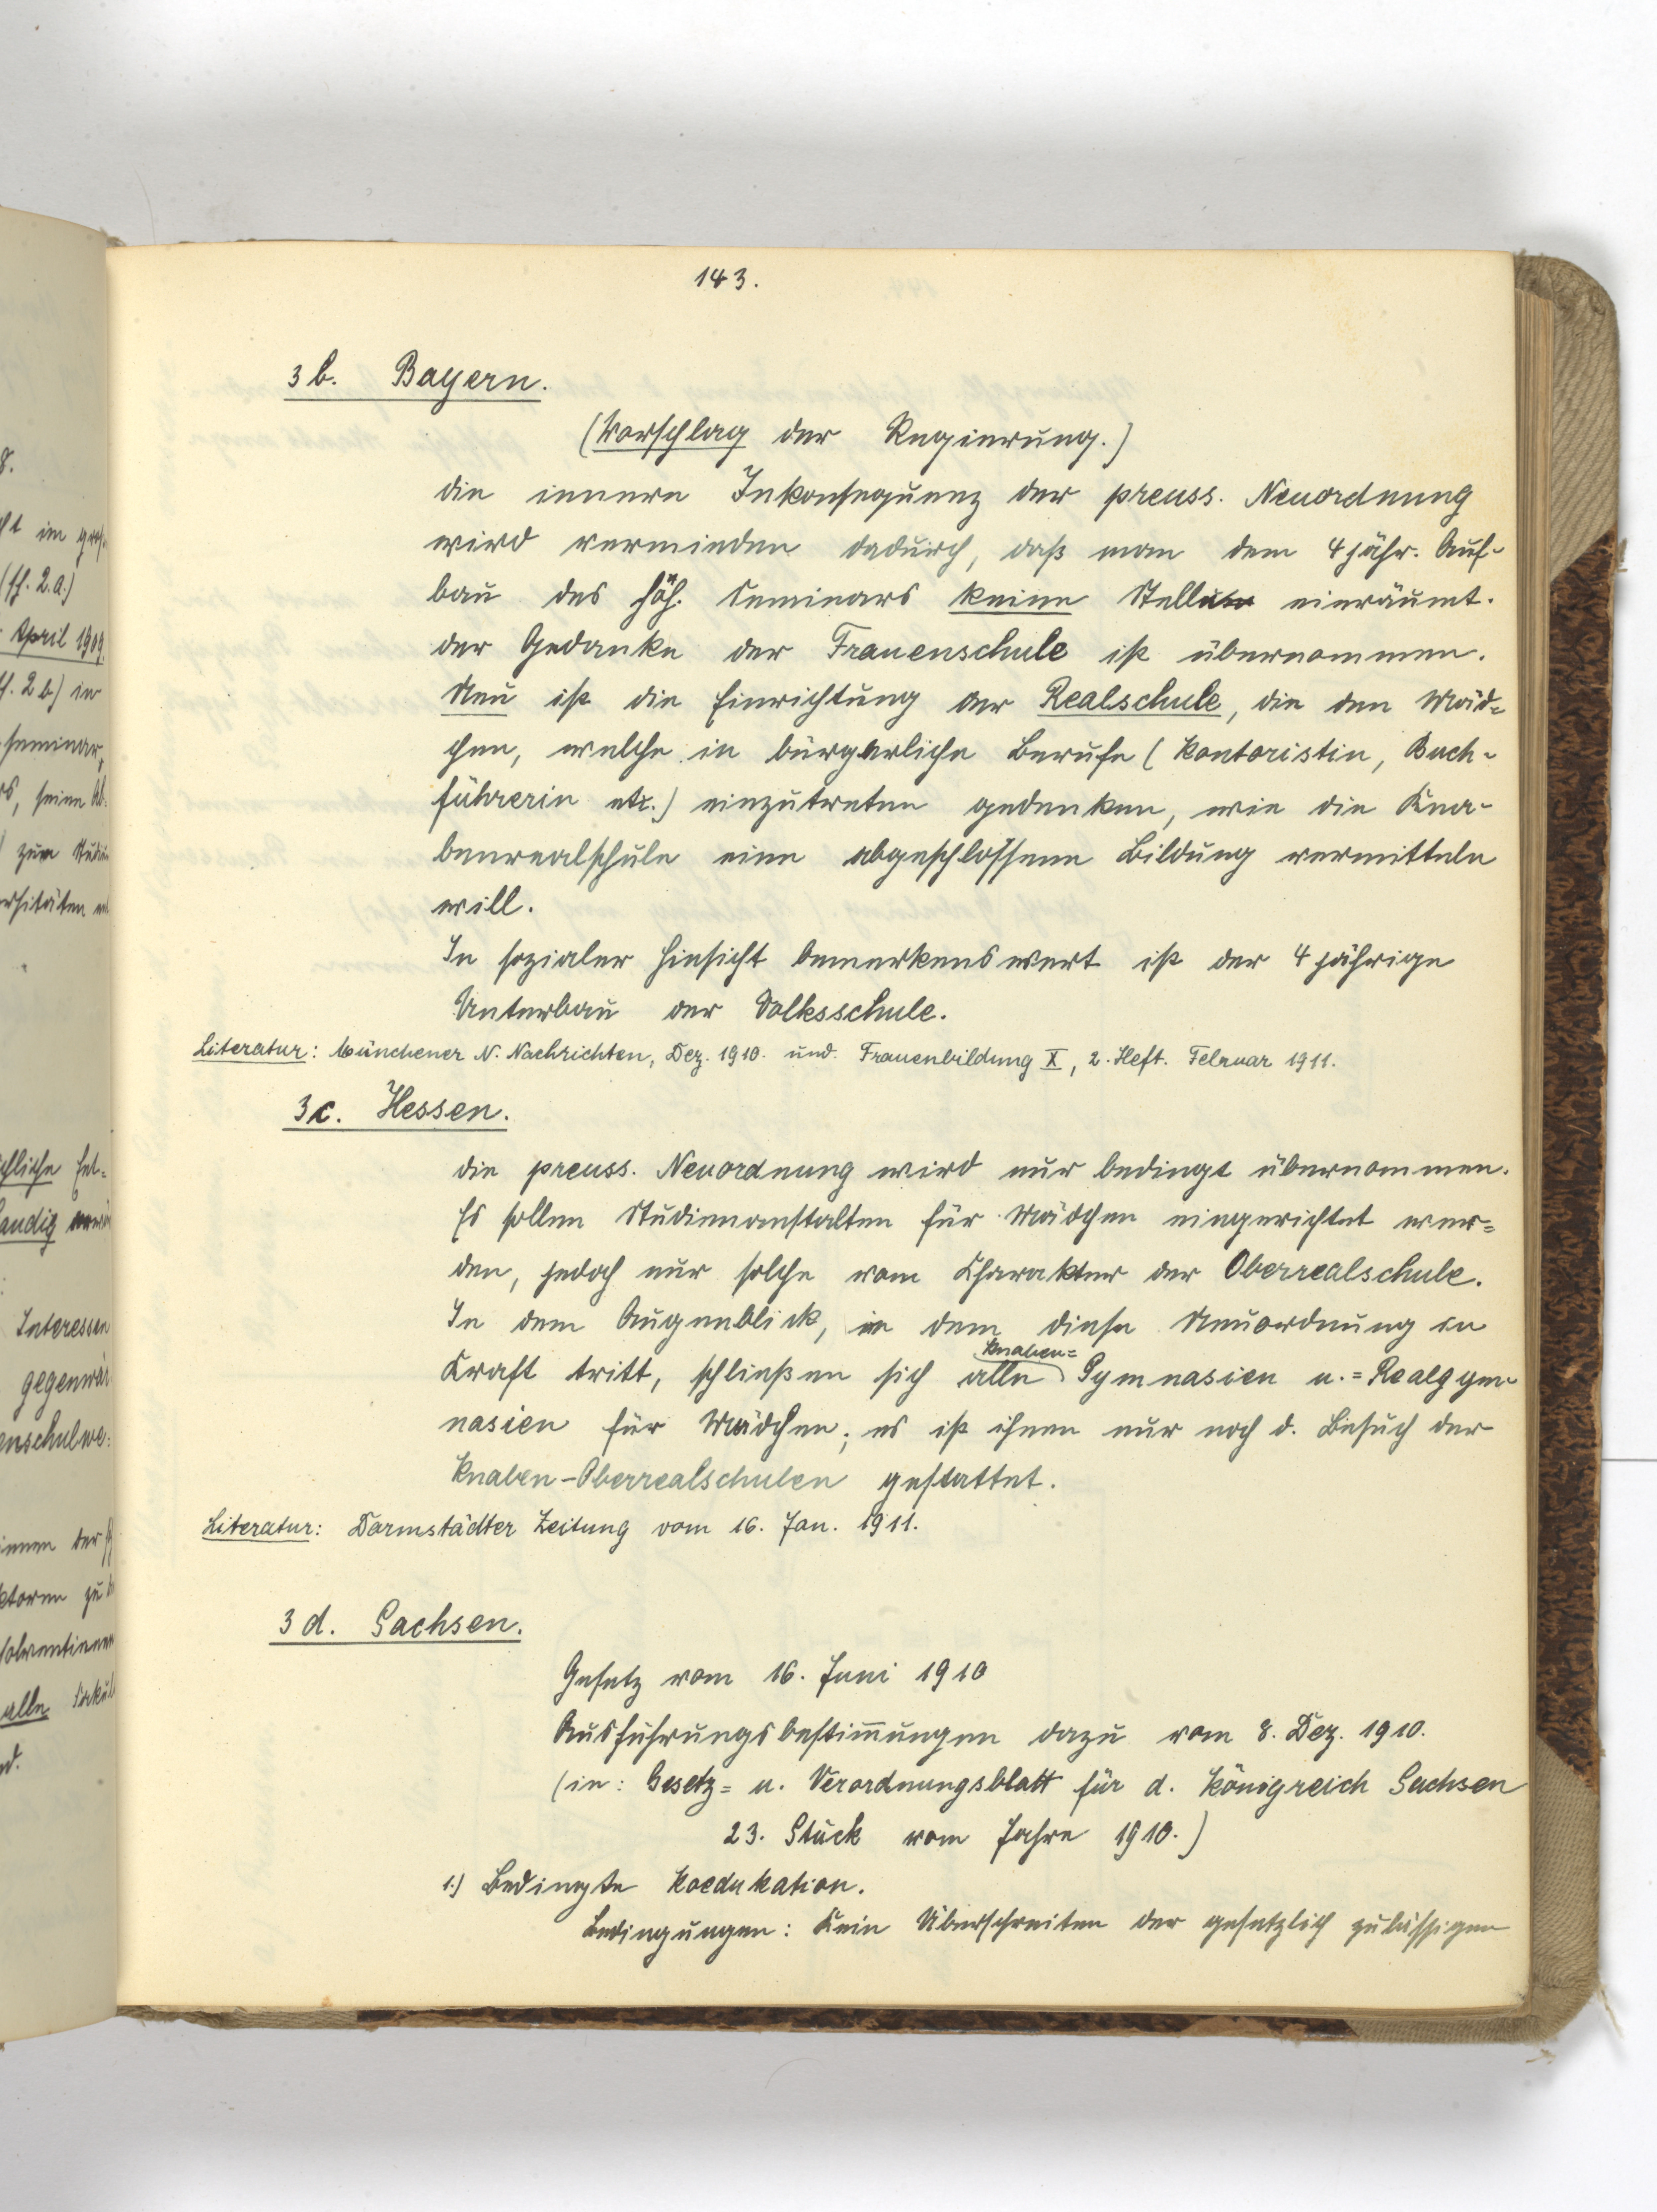 143.
3 b. Bayern.
(Vorschlag der Regierung.)
Die innere Inkonsequenz der preuss. Neuordnung
wird vermieden dadurch, daß man dem 4 jähr. Auf-
bau des höh. Seminars keine Stelle einräumt.
Der Gedanke der Frauenschule ist übernommen.
Neu ist die Einrichtung der Realschule, die den Mäd=
chen, welche in bürgerliche Berufe (Kontoristin, Buch-
führerin etc.) einzutreten gedenken, wie die Kna-
benrealschule eine abgeschlossene Bildung vermitteln
will.
In sozialer Hinsicht bemerkenswert ist der 4 jährige
Unterbau der Volksschule.
Literatur: Münchener N. Nachrichten, Dez. 1910. und Frauenbildung X, 2. Heft. Februar 1911.
3c. Hessen.
Die preuss. Neuordnung wird nur bedingt übernommen.
Es sollen Studienanstalten für Mädchen eingerichtet wer=
den, jedoch nur solche vom Charakter der Oberrealschule.
In dem Augenblick, in dem diese Neuordnung in
Knaben=
Kraft tritt, schließen sich alle Gymnasien u. = Realgym-
nasien für Mädchen; es ist ihnen nur noch d. Besuch der
Knaben-Oberrealschulen gestattet.
Literatur: Darmstädter Zeitung vom 16. Jan. 1911.
3 d. Sachsen.
Gesetz vom 16. Juni 1910
Ausführungsbestim̄ungen dazu vom 8. Dez. 1910.
(in: Gesetz= u. Verordnungsblatt für d. Königreich Sachsen
23. Stück vom Jahre 1910.)
1.) Bedingte Koedukation.
Bedingungen: Kein Überschreiten der gesetzlich zulässigen